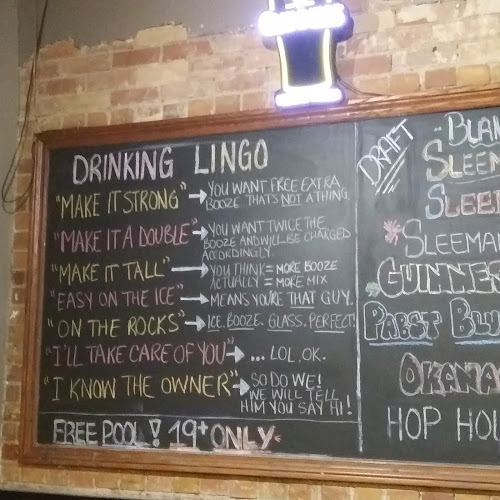 DRINKING LINGO
"MAKE IT STRONG" → YOU WANT FREE EXTRA
BOOZE THAT'S NOT A THING.
"MAKE IT A DOUBLE" → YOU WANT TWICE THE
BOOZE AND WILL BE CHARGED
ACCORDINGLY.
"MAKE IT TALL" → YOU THINK = MORE BOOZE
ACTUALLY = MORE MIX
"EASY ON THE ICE" → MEANS YOU'RE THAT GUY.
"ON THE ROCKS" → ICE. BOOZE. GLASS. PERFECT!
"I'LL TAKE CARE OF YOU" → ... LOL, OK.
"I KNOW THE OWNER" → SO DO WE!
WE WILL TELL
HIM YOU SAY HI!
FREE POOL! 19+ ONLY
DRAFT
BLAN
SLEEM
SLEE
SLEEMA
GUINNES
PABST BLU
OKANA
HOP HOU